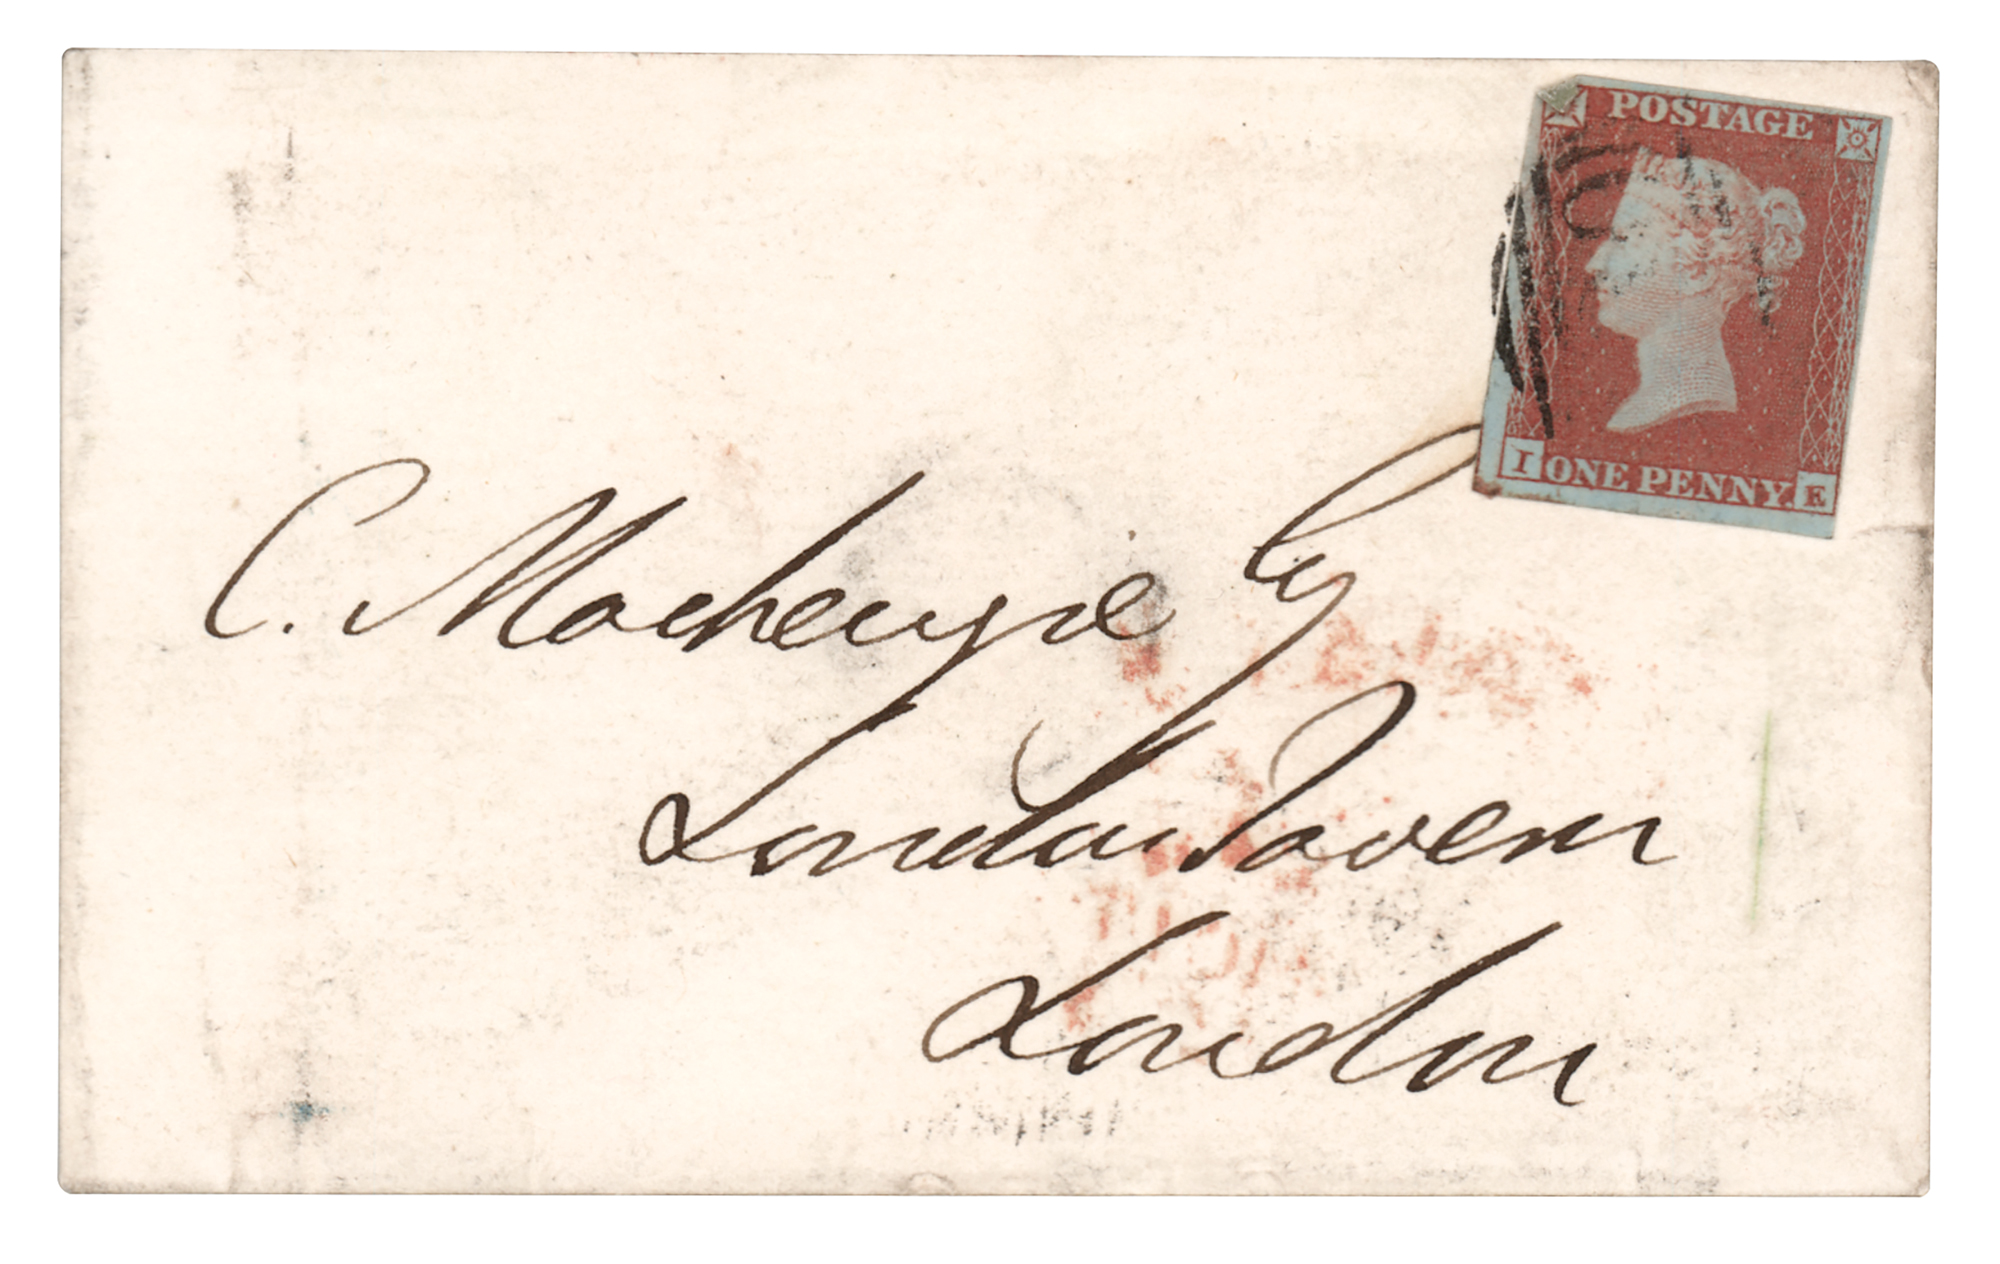 POSTAGE
I ONE PENNY. E
C. Mackenzie Esq
London Tavern
London